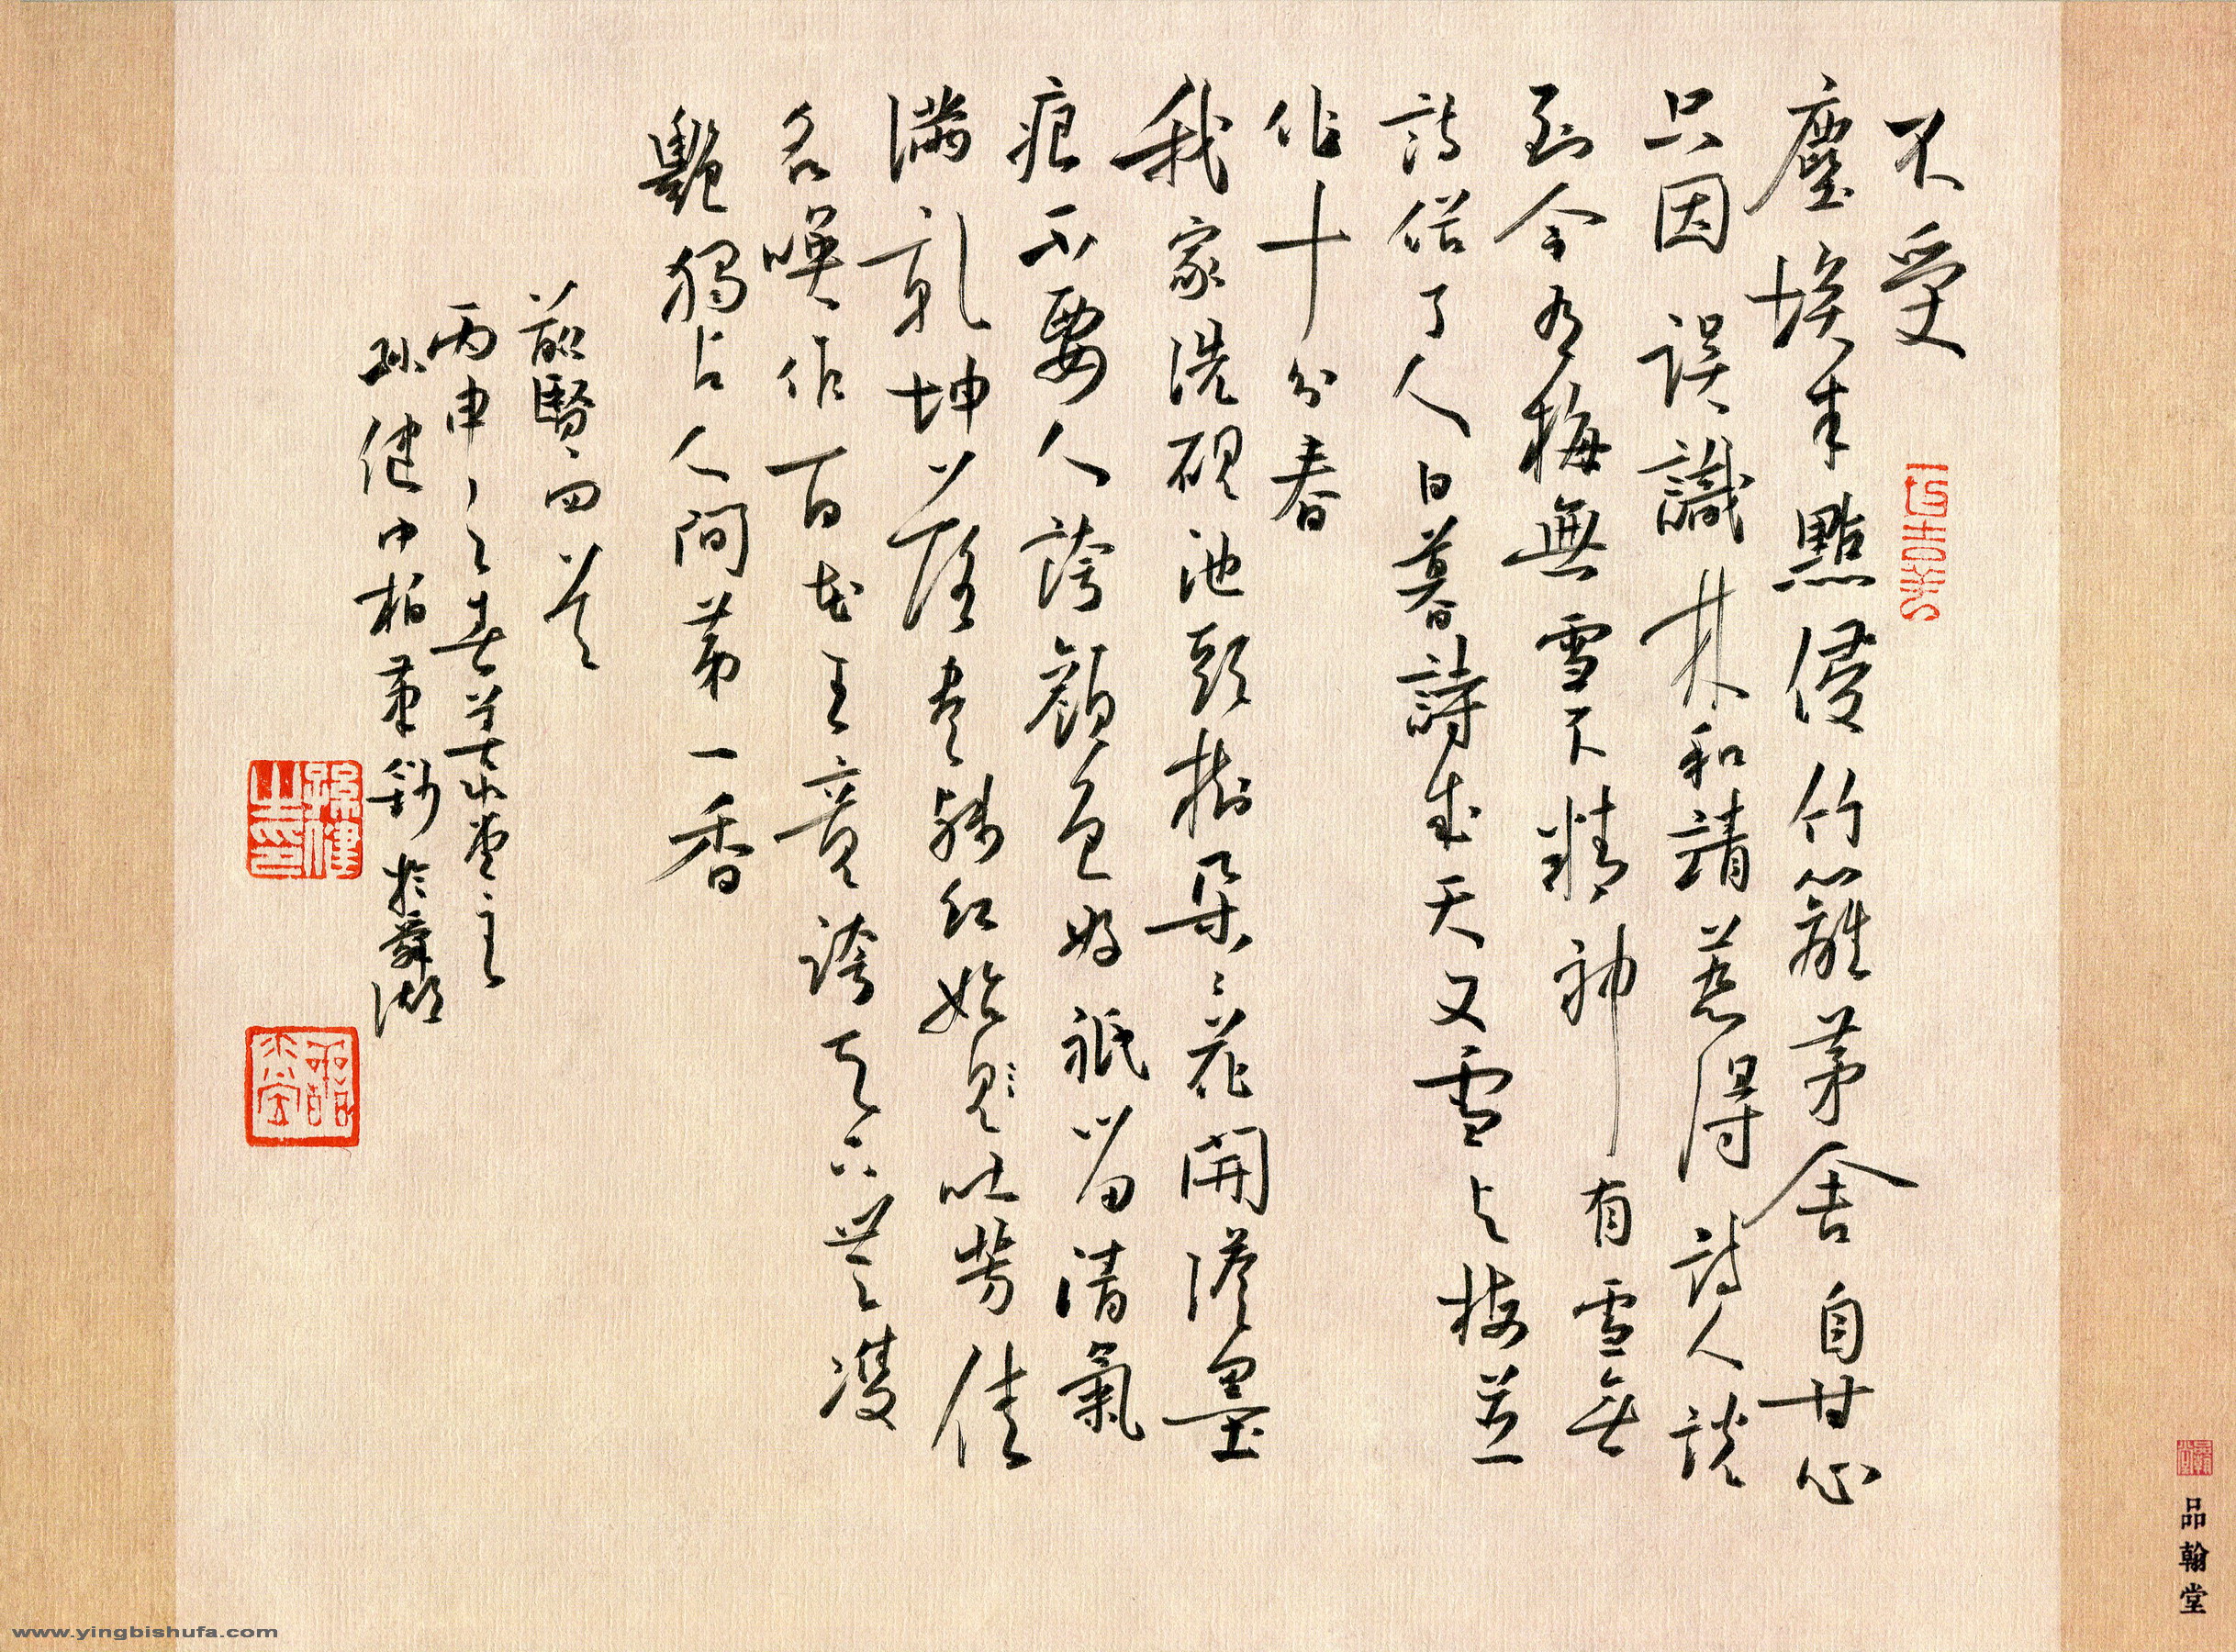 不受
塵埃半點侵竹籬茅舍自甘心
只因誤識林和靖惹得詩人說
到今有梅無雪不精神有雪無
詩俗了人日暮詩成天又雪與梅並
作十分春
我家洗硯池頭樹朵々花開淡墨
痕不要人誇顏色好祇留清氣
滿乾坤落盡殘紅始見吐芳佳
名喚作百花王競誇天下無雙
艷獨占人間第一香
前賢四首
丙申之春堂主
孫健中於舜湖
孫健之印
品翰堂
www.yingbishufa.com